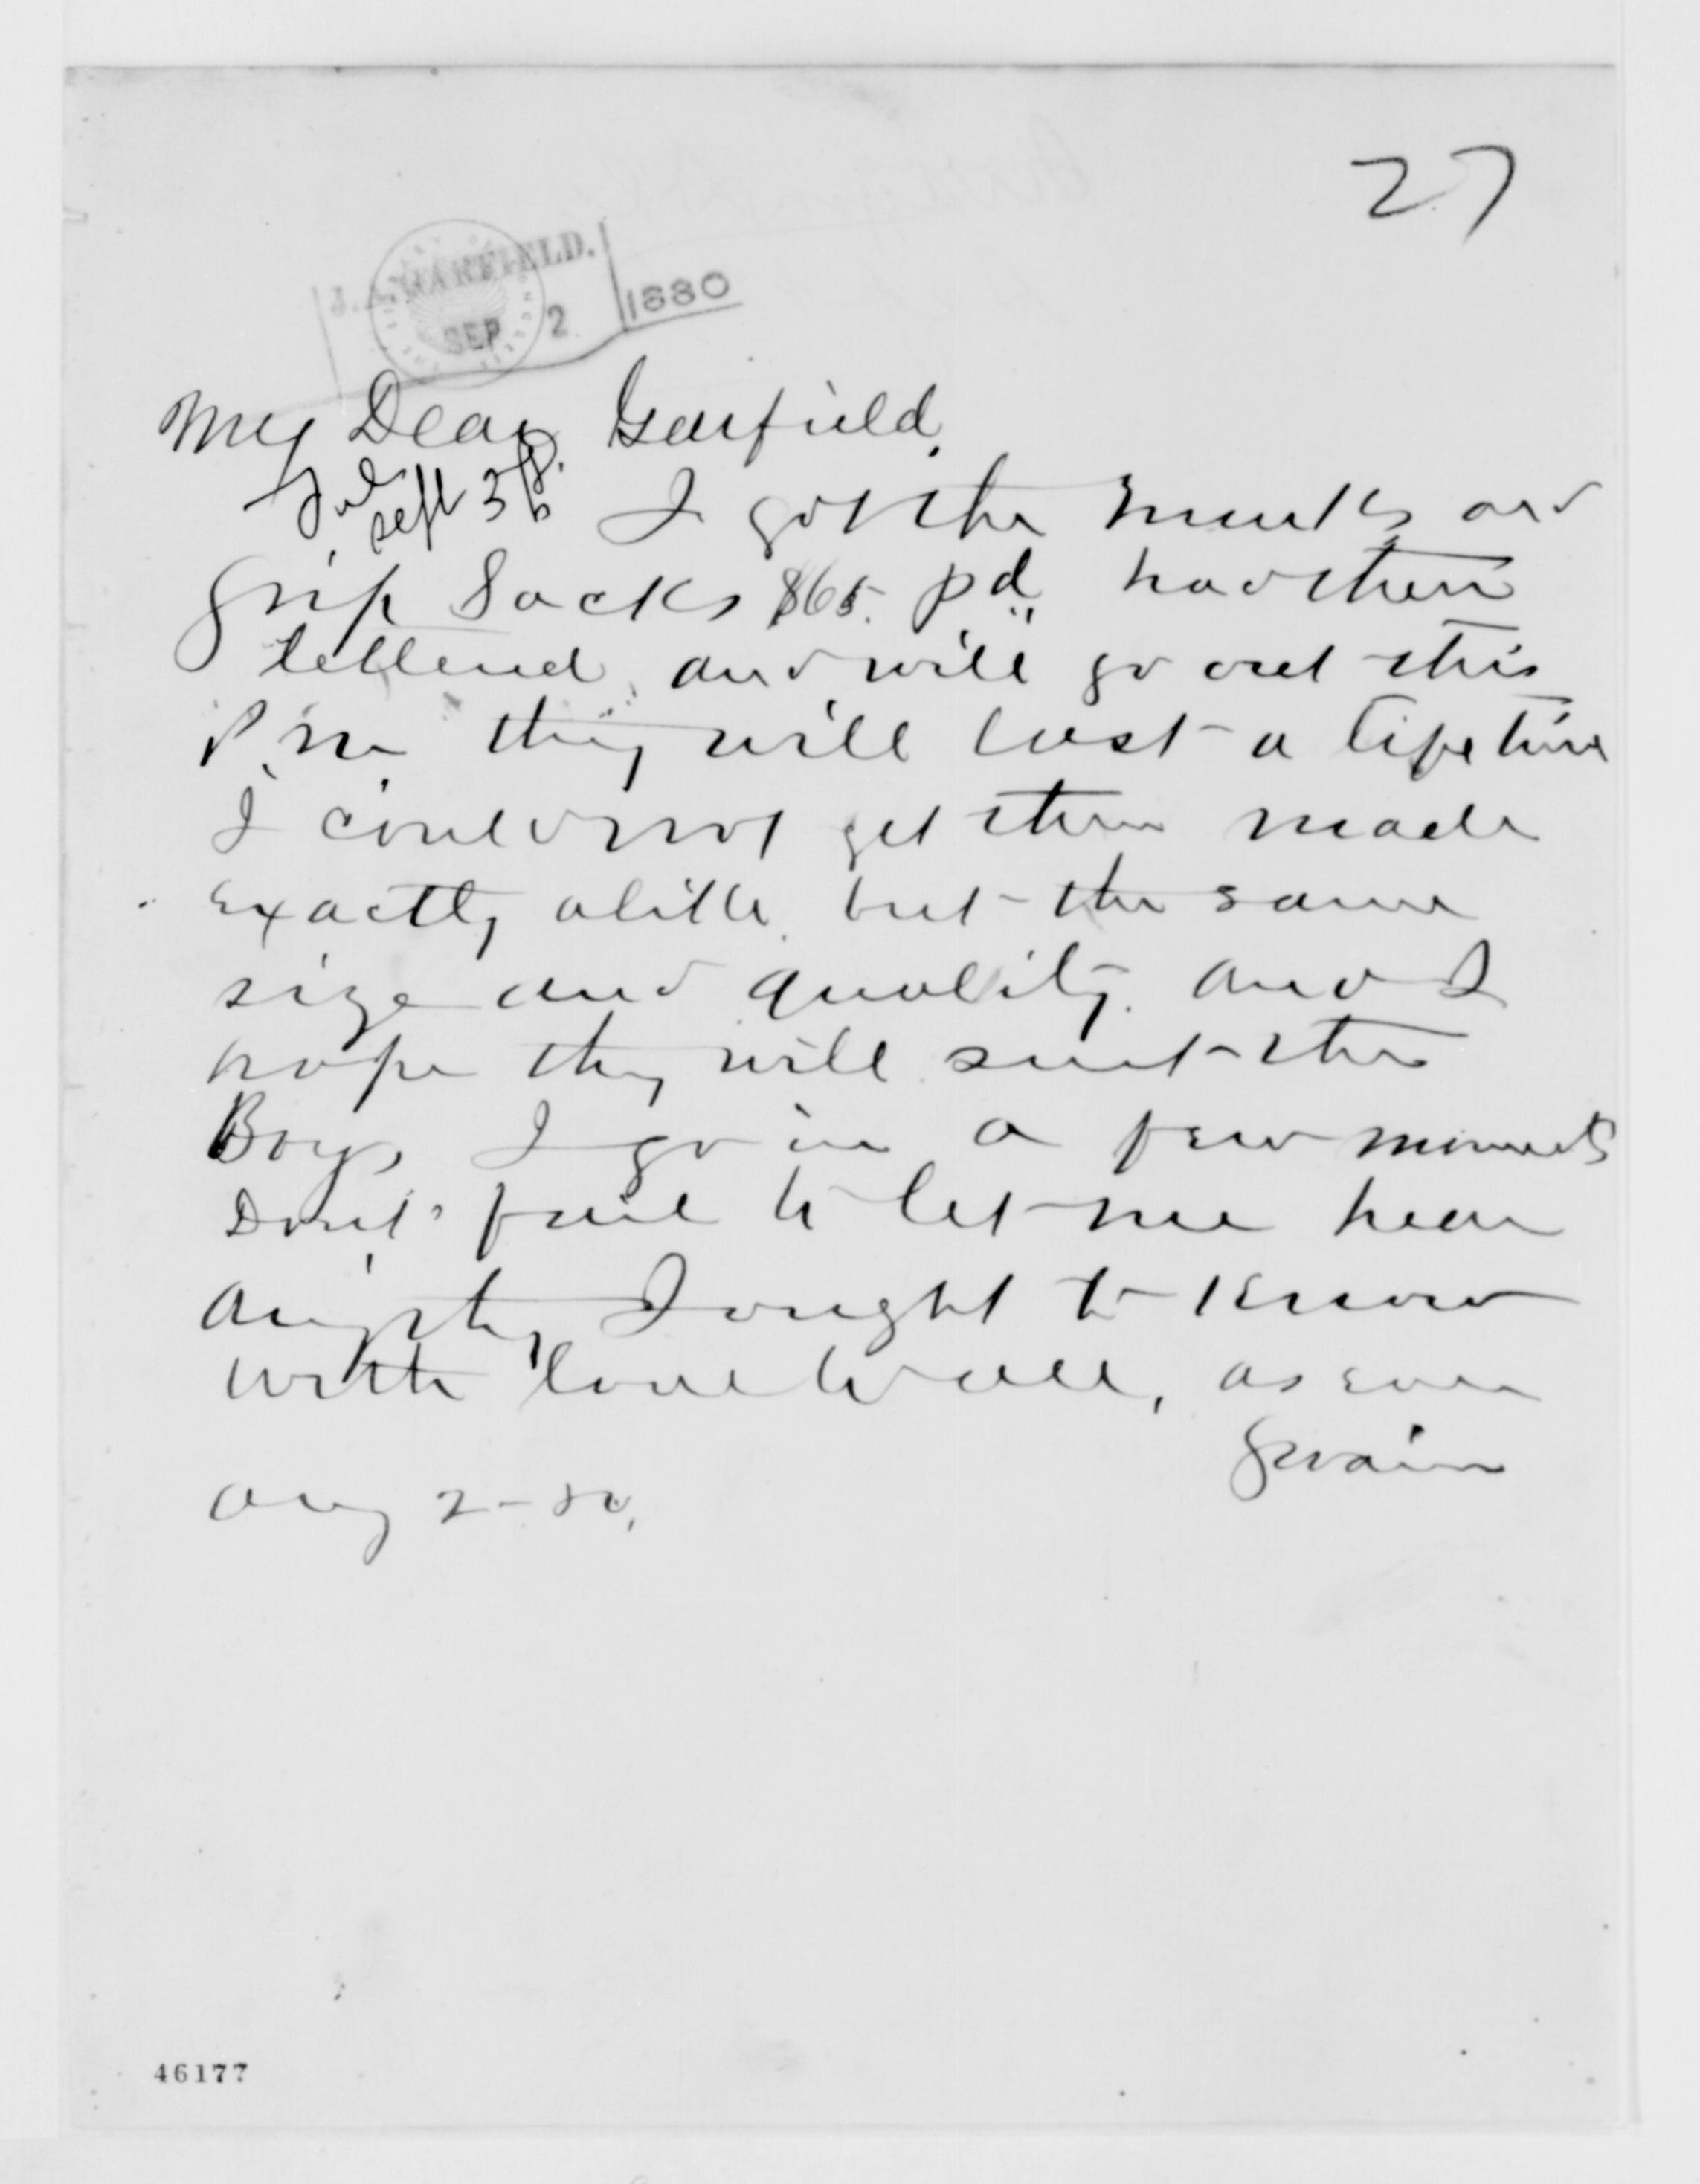 27
J. A. GARFIELD.
SEP 2 1880
My Dear Garfield.
Sept 3
I got the trunks and
grip Sacks $65. pd had them
lettered and will go out this
P.M. they will last a life time
I could not get them made
exactly alike but the same
size and quality. and I
hope they will suit the
Boys I go in a few moments
Dont fail to let me hear
anything I ought to know
with love to all, as ever
Swaim
Aug 2-80.
46177